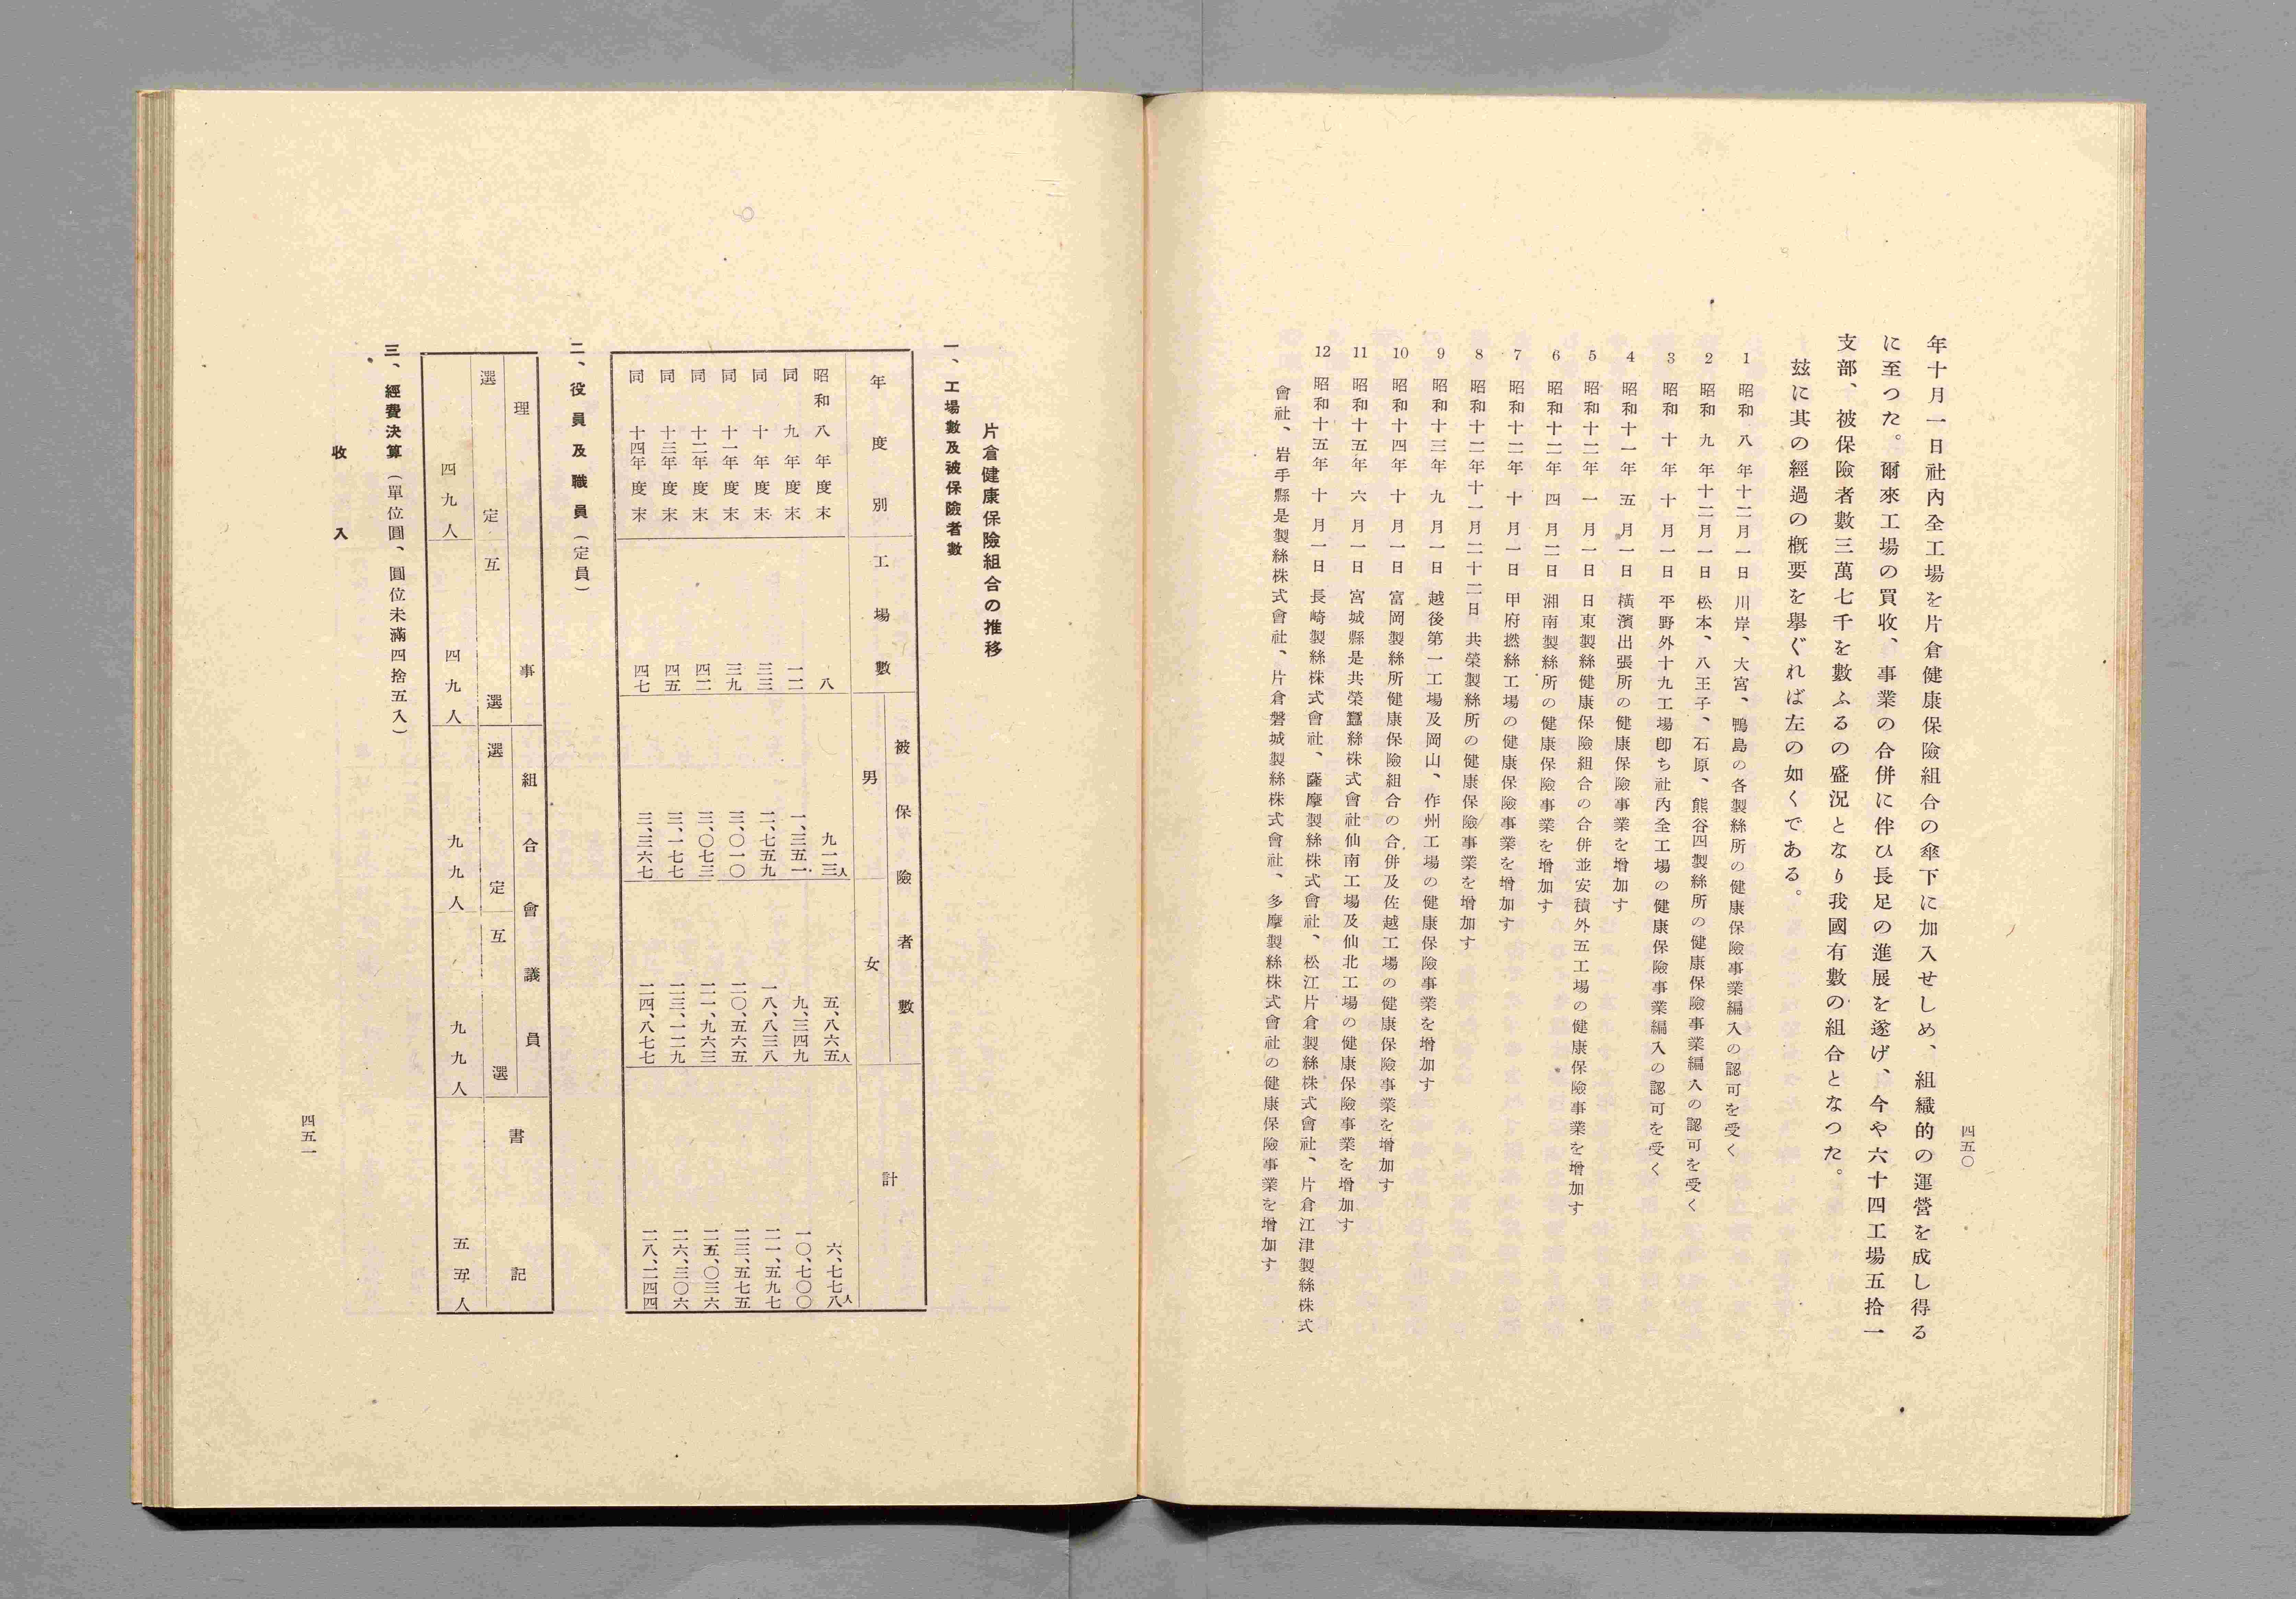 年十月一日社內全工場を片倉健康保險組合の傘下に加入せしめ、組織的の運營を成し得る
に至つた。爾來工場の買收、事業の合併に伴ひ長足の進展を遂げ、今や六十四工場五拾一
支部、被保險者數三萬七千を數ふるの盛況となり我國有數の組合となつた。
玆に其の經過の槪要を擧ぐれば左の如くである。
1 昭和八年十二月一日 川岸、大宮、鴨島の各製絲所の健康保險事業編入の認可を受く
2 昭和九年十二月一日 松本、八王子、石原、熊谷四製絲所の健康保險事業編入の認可を受く
3 昭和十年十月一日 平野外十九工場卽ち社內全工場の健康保險事業編入の認可を受く
4 昭和十一年五月一日 橫濱出張所の健康保險事業を增加す
5 昭和十二年一月一日 日東製絲健康保險組合の合併並安積外五工場の健康保險事業を增加す
6 昭和十二年四月二日 湘南製絲所の健康保險事業を增加す
7 昭和十二年十月一日 甲府撚絲工場の健康保險事業を增加す
8 昭和十二年十一月二十二日 共榮製絲所の健康保險事業を增加す
9 昭和十三年九月一日 越後第一工場及岡山、作州工場の健康保險事業を增加す
10 昭和十四年十月一日 富岡製絲所健康保險組合の合併及佐越工場の健康保險事業を增加す
11 昭和十五年六月一日 宮城縣是共榮蠶絲株式會社仙南工場及仙北工場の健康保險事業を增加す
12 昭和十五年十月一日 長崎製絲株式會社、薩摩製絲株式會社、松江片倉製絲株式會社、片倉江津製絲株式
會社、岩手縣是製絲株式會社、片倉磐城製絲株式會社、多摩製絲株式會社の健康保險事業を增加す
四五〇
片倉健康保險組合の推移
一、工場數及被保險者數
年度別 工場數 被保險者數 男 女 計
昭和八年度末 八 九一三人 五、八六五人 六、七七八人
同九年度末 一二 一、三五一 九、三四九 一〇、七〇〇
同十年度末 三三 二、七五九 一八、八三八 二一、五九七
同十一年度末 三九 三、〇一〇 二〇、五六五 二三、五七五
同十二年度末 四二 三、〇七三 二一、九六三 二五、〇三六
同十三年度末 四五 三、一七七 二三、一二九 二六、三〇六
同十四年度末 四七 三、三六七 二四、八七七 二八、二四四
二、役員及職員（定員）
理事 組合會議員 書記
選定 互選 選定 互選
四九人 四九人 九九人 九九人 五五人
三、經費決算（單位圓、圓位未滿四捨五入）
收入
四五一